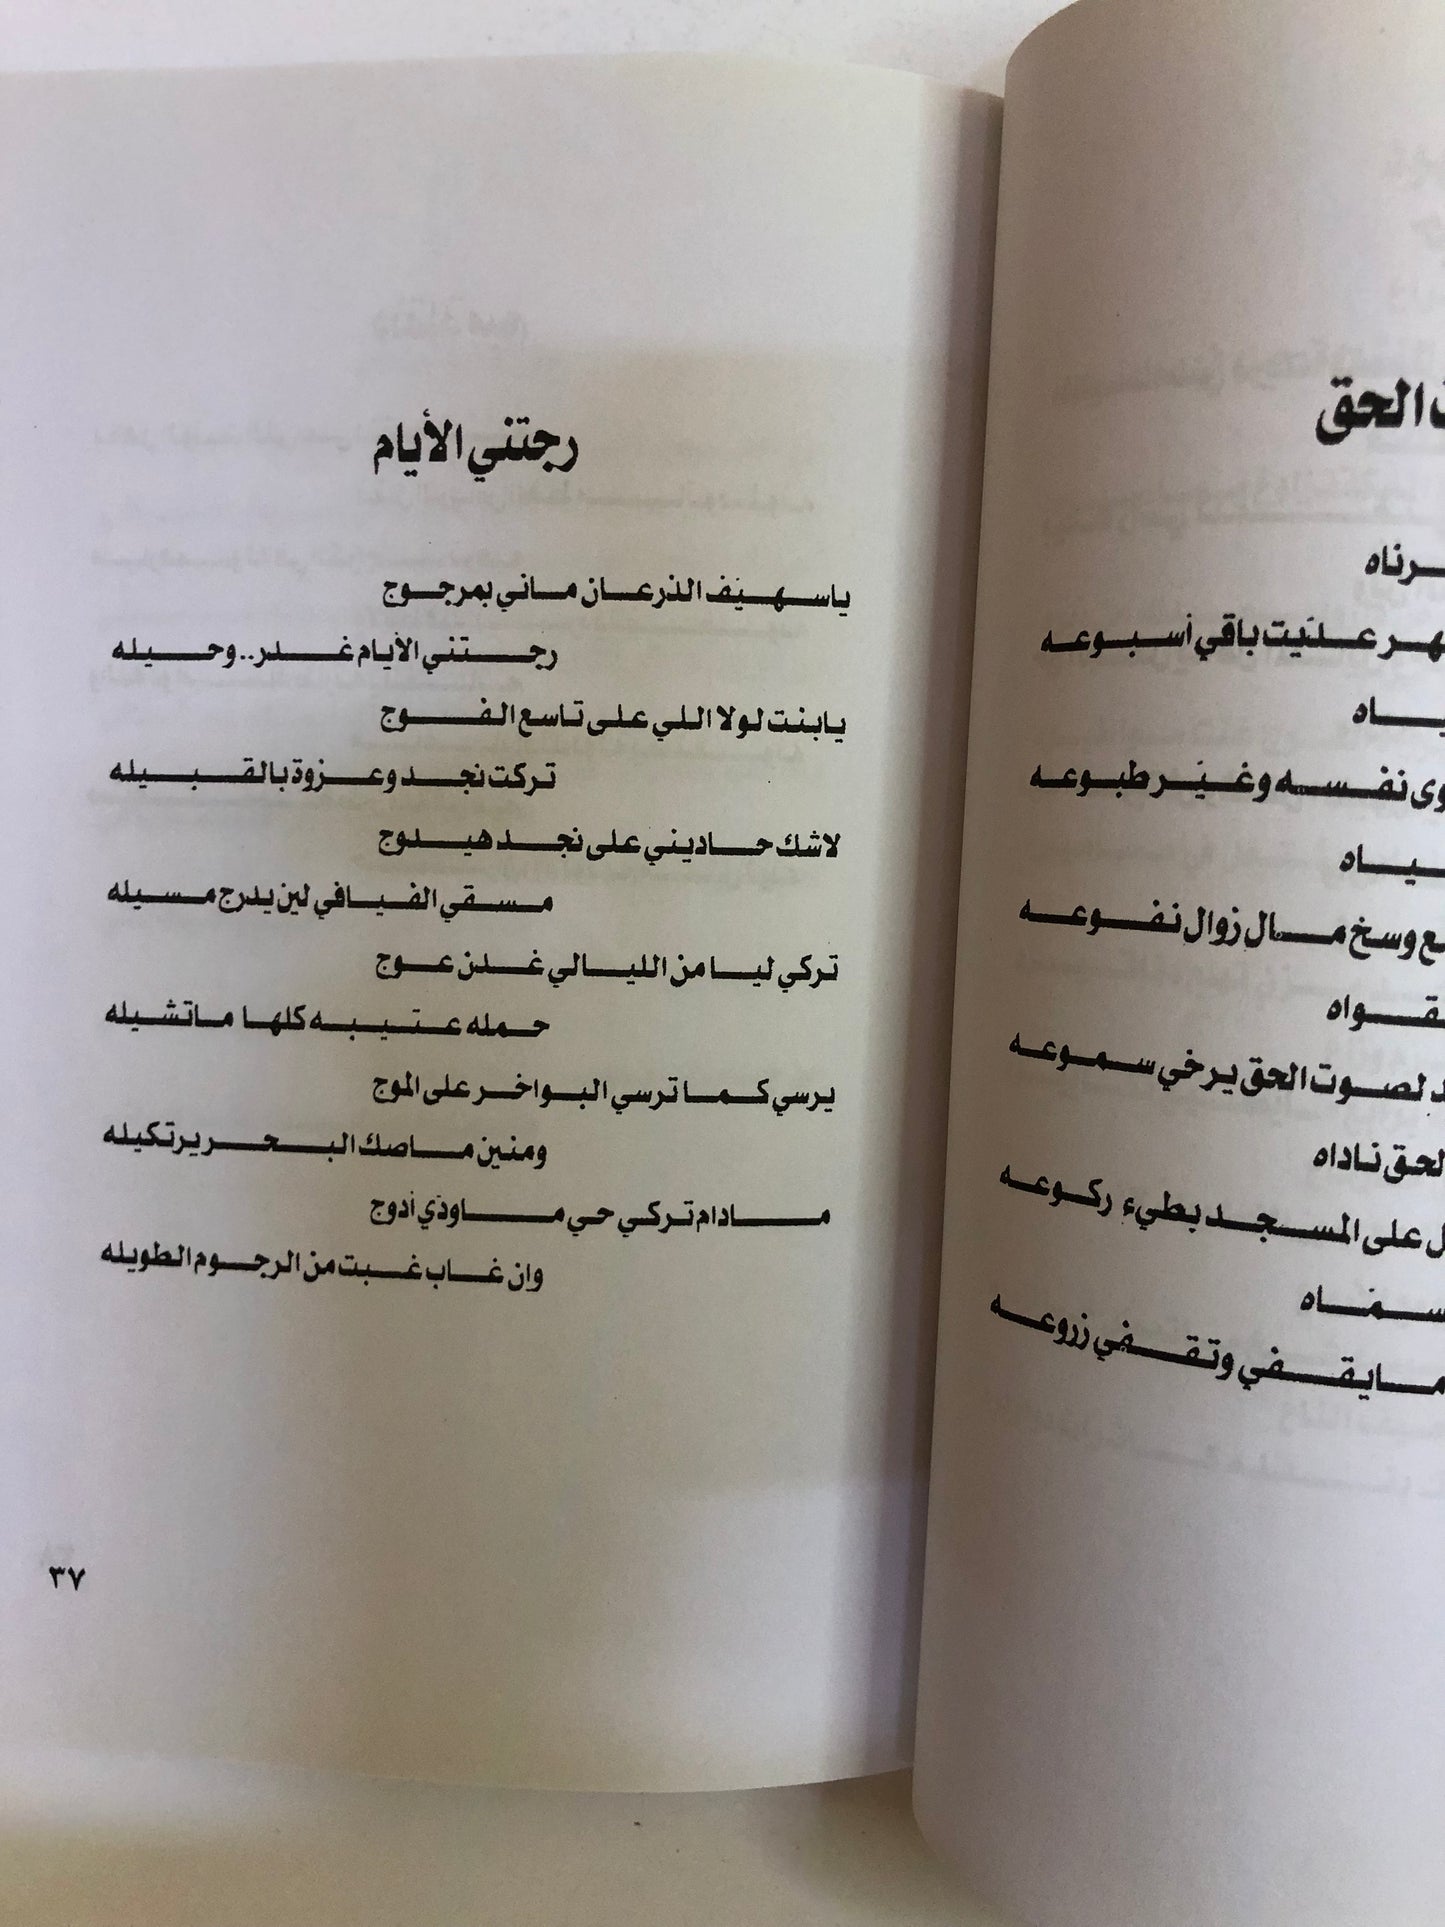 رجتني الأيام
ياسهيّف الذرعان ماني بمرجوج
رجتني الأيام غدر.. وحيله
يابنت لولا اللي على تاسع الفوج
تركت نجد وعزوة بالقبيله
لاشك حاديني على نجد هيدوج
مسقي الفيافي لين يدرج مسيله
تركي ليا من الليالي غدن عوج
حمله عتيبه كلها ماتشيله
يرسي كما ترسي البواخر على الموج
ومنين ماصك البحر يرتكيله
مادام تركي حي ماوذّي أدوج
وان غاب غبت من الرجوم الطويله
٣٧
الحق
رناه
هر علّيت باقي أسبوعه
ياه
وى نفسه وغيّر طبوعه
ياه
ع وسخ مال زوال نفوعه
قواه
د لصوت الحق يرخي سموعه
لحق ناداه
ل على المسجد بطيء ركوعه
سمّاه
مايقفي وتقفي زروعه